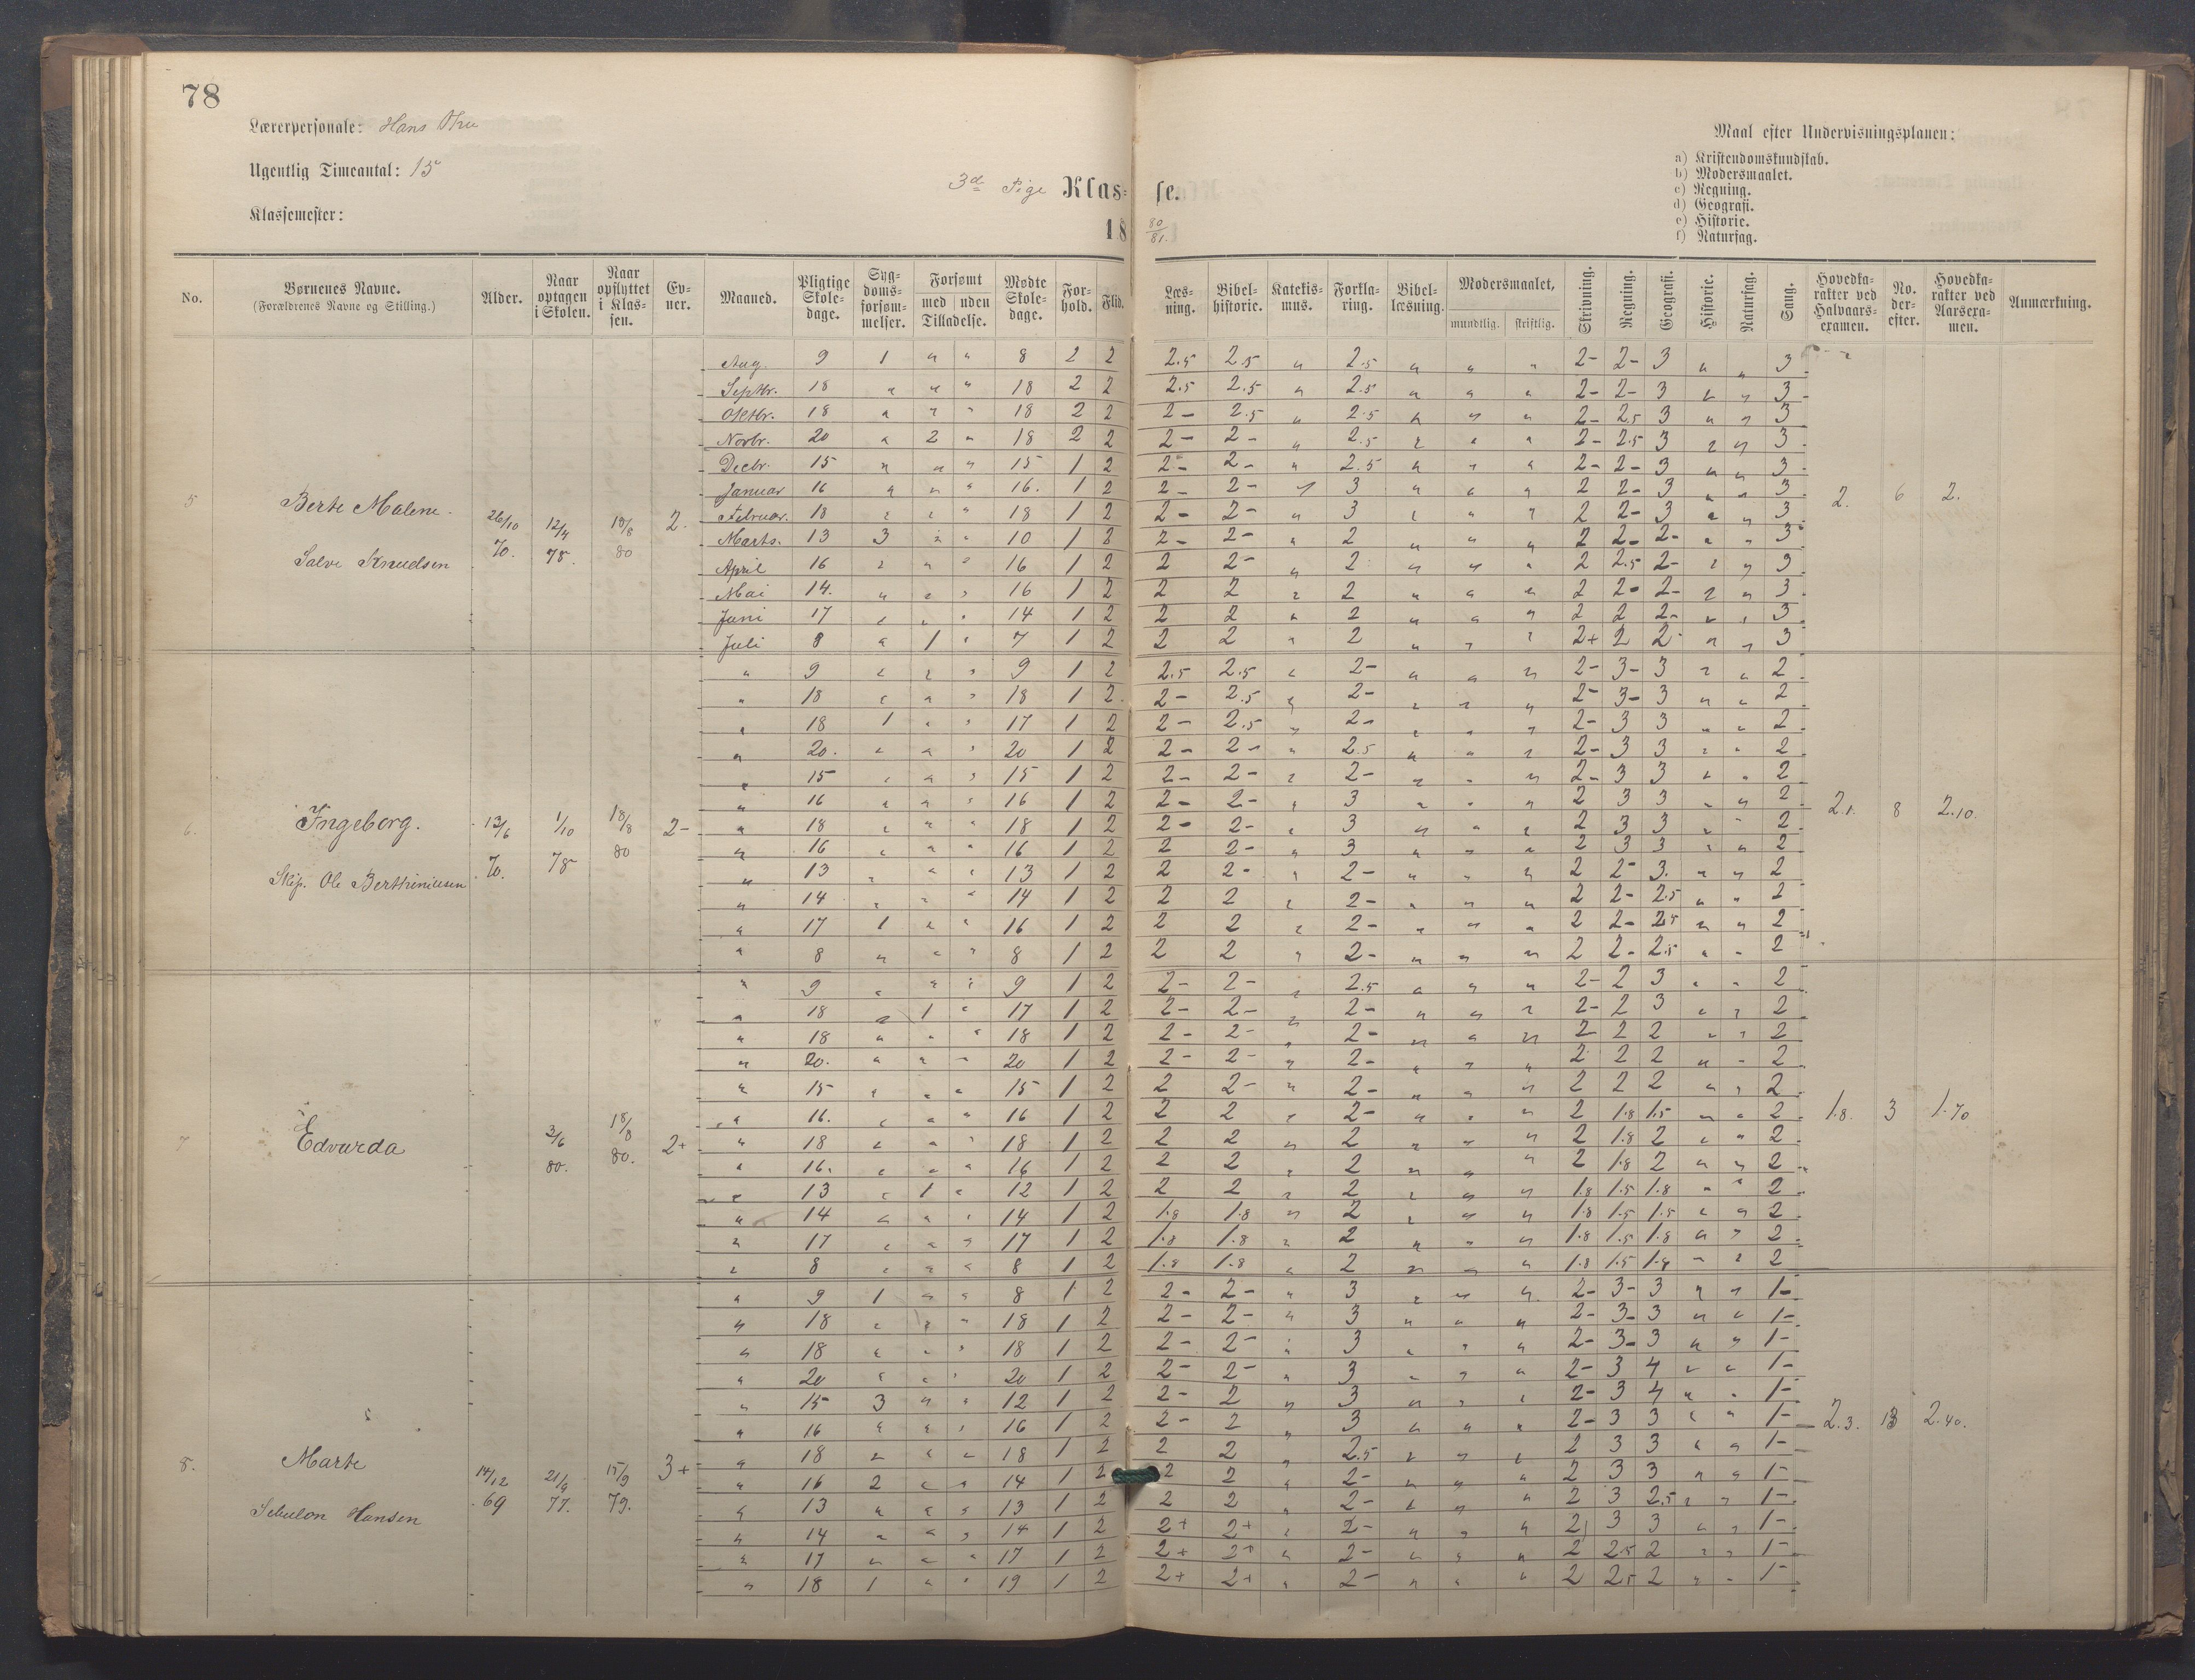 78
Lærerpersonale: Hans
Ugentlig Timeantal: 15
Klassemester:
3de Pige Klasse.
18 80/81.
Maal efter Undervisningsplanen:
a) Kristendomskundskab.
b) Modersmaalet.
c) Regning.
d) Geografi.
e) Historie.
f) Naturfag.
No. Børnenes Navne. (Forældrenes Navne og Stilling.) Alder. Naar optagen i Skolen. Naar opflyttet i Klassen. Evner. Maaned. Pligtige Skoledage. Sygdomsforsømmelser. Forsømt med uden Tilladelse. Mødte Skoledage. Forhold. Flid. Læsning. Bibelhistorie. Katekismus. Forklaring. Bibellæsning. Modersmaalet, mundtlig. skriftlig. Skrivning. Regning. Geografi. Historie. Naturfag. Sang. Hovedkarakter ved Halvaarsexamen. No. derefter. Hovedkarakter ved Aarsexamen. Anmærkning.
5 Berte Malene. Salve Knudsen 26/10 70. 12/4 78. 18/8 80 2. 2. 6 2.
Aug. 9 1 " " 8 2 2 2.5 2.5 " 2.5 " " " 2- 2- 3 " " 3
Septbr. 18 " " " 18 2 2 2.5 2.5 " 2.5 " " " 2- 2- 3 " " 3
Oktbr. 18 " " " 18 2 2 2- 2.5 " 2.5 " " " 2- 2.5 3 " " 3
Novbr. 20 " 2 " 18 2 2 2- 2- " 2.5 " " " 2- 2.5 3 " " 3
Decbr. 15 " " " 15 1 2 2- 2- " 2.5 " " " 2- 2- 3 " " 3
Januar 16 " " " 16. 1 2 2- 2- " 3 " " " 2 2- 3 " " 3
Februar. 18 " " " 18 1 2 2- 2- " 3 " " " 2 2- 3 " " 3
Marts. 13 3 " " 10 1 2 2- 2- " 2 " " " 2 2- 2- " " 3
April 16 " " " 16 1 2 2 2- " 2 " " " 2 2.5 2- " " 3
Mai 14. " " " 16 1 2 2 2 " 2 " " " 2 2- 2- " " 3
Juni 17 " " " 14 1 2 2 2 " 2 " " " 2 2 2- " " 3
Juli 8 " 1 " 7 1 2 2 2 " 2 " " " 2+ 2 2- " " 3
6. Ingeborg. Skip. Ole 13/6 70. 1/10 78 18/8 80 2- 2.1. 8 2.10.
" 9 " " " 9 1 2 2.5 2.5 " 2- " " " 2- 3- 3 " " 2
" 18 " " " 18 1 2. 2- 2.5 " 2- " " " 2- 3- 3 " " 2
" 18 1 " " 17 1 2 2- 2.5 " 2- " " " 2- 3 3 " " 2
" 20. " " " 20 1 2 2- 2- " 2.5 " " " 2- 3 3 " " 2
" 15 " " " 15 1 2 2- 2- " 2- " " " 2- 3 3 " " 2
" 16 " " " 16 1 2 2- 2- " 3 " " " 2 3 3 " " 2
" 18 " " " 18 1 2 2- 2- " 3 " " " 2 3 3 " " 2
" 16 " " " 16 1 2 2 2- " 3 " " " 2 3 3 " " 2
" 13 " " " 13 1 2 2 2- " 2- " " " 2 2- 3. " " 2
" 14 " " " 14 1 2 2 2 " 2- " " " 2 2- 2.5 " " 2
" 17 1 " " 16 1 2 2 2 " 2- " " " 2 2- 2.5 " " 2
" 8 " " " 8 1 2 2 2 " 2- " " " 2 2- 2.5 " " 2
7 Edvarda 3/6 80. 18/8 80. 2+ 1.8. 3 1.70
" 9 " " " 9 1 2 2- 2- " 2.5 " " " 2- 2 3 " " 2
" 18 " 1 " 17 1 2 2- 2- " 2- " " " 2- 2 3 " " 2
" 18 " " " 18 1 2 2- 2- " 2- " " " 2- 2 2 " " 2
" 20. " " " 20 1 2 2- 2- " 2- " " " 2 2 2 " " 2
" 15 " " " 15 1 2 2 2- " 2- " " " 2 2 2 " " 2
" 16. " " " 16 1 2 2 2 " 2- " " " 2 1.8 1.5 " " 2
" 18 " " " 18 1 2 2 2 " 2 " " " 2 1.8 2 " " 2
" 16. " " " 16 1 2 2 2 " 2 " " " 2 1.8 2 " " 2
" 13 " 1 " 12 1 2 2 2 " 2 " " " 1.8 1.5 1.8 " " 2
" 14 " " " 14 1 2 1.8 1.8 " 2 " " " 1.8 1.5 1.5 " " 2
" 17 " " " 17 1 2 1.8 1.8 " 2 " " " 1.8 1.5 1.8 " " 2
" 8 " " " 8 1 2 1.8 1.8 " 2 " " " 1.8 1.5 1.8 " " 2
8. Marte Sebulon Hansen 14/12 69 21/9 77. 15/9 79. 3+ 2.3. 13 2.40.
" 9 1 " " 8 1 2 2- 2- " 3 " " " 2- 3- 3 " " 1-
" 18 " " " 18 1 2 2- 2- " 3 " " " 2- 3- 3 " " 1-
" 18 " " " 18 1 2 2- 2- " 3 " " " 2- 3- 3 " " 1-
" 20 " " " 20 1 2 2- 2- " 3 " " " 2- 3 4 " " 1-
" 15 3 " " 12 1 2 2- 2 " 3 " " " 2- 3 4 " " 1-
" 16 " " " 16 1 2 2- 2 " 3 " " " 2- 3 3 " " 1-
" 18 " " " 18 1 2 2 2 " 2.5 " " " 2 3 3 " " 1-
" 16 2 " " 14 1 2 2 2 " 2- " " " 2 3 3 " " 1-
" 13 " " " 13 1 2 2 2 " 2- " " " 2 3 2.5 " " 1-
" 14 " " " 14 1 2 2+ 2+ " 2- " " " 2 3 3 " " 1-
" 17 " " " 17 1 2 2+ 2+ " 2- " " " 2 2.5 2 " " 1-
" 18 1 " " 19 1 2 2+ 2+ " 2- " " " 2 2.5 2 " " 1-